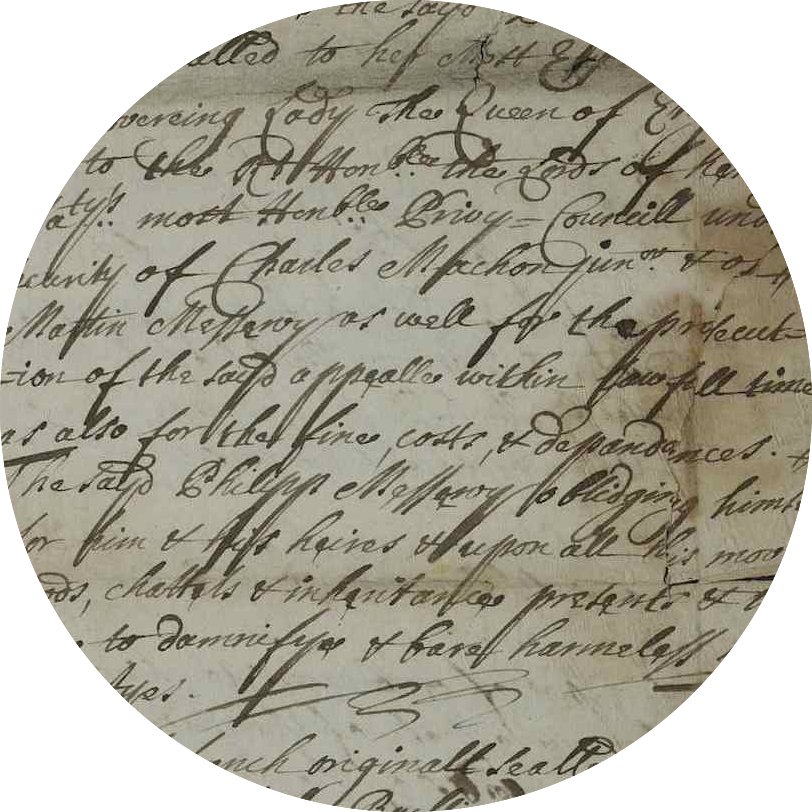 the sayd
alled to her Most Ex
vereing Lady The Queen of En
to the Rt Honble the Lords of her
atys most Honble Privy=Councill und
curity of Charles Machon junor & of
Martin Messervy as well for the prosecut=
=ion of the sayd appealle within lawfull time
as also for the fine, costs, & dependances.
The sayd Philipp Messervy oblidging himse
for him & his heires & upon all his mov
ods, chattels & inheritance presents &
to damnifye & bare harmeless
tyes.
ench originall sealed